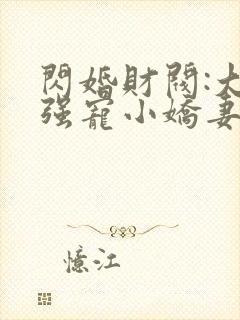 閃婚財閥:大
强寵小嬌妻
憶江